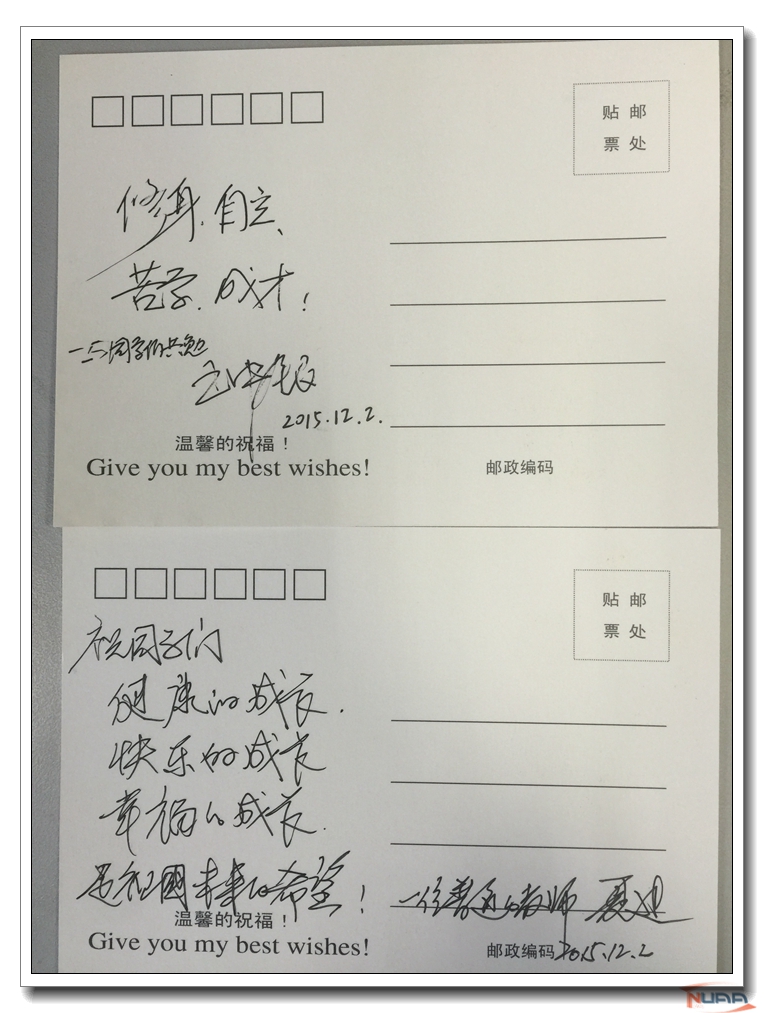 贴 邮
票 处
修身、自立、
苦学、成才！
—与同学们共勉
2015.12.2.
温馨的祝福！
Give you my best wishes!
邮政编码
贴 邮
票 处
祝同学们
健康的成长.
快乐的成长
幸福的成长.
是祖國未来的希望！
一位普通的教师 夏迎
温馨的祝福！
Give you my best wishes!
邮政编码
2015.12.2
NUAA